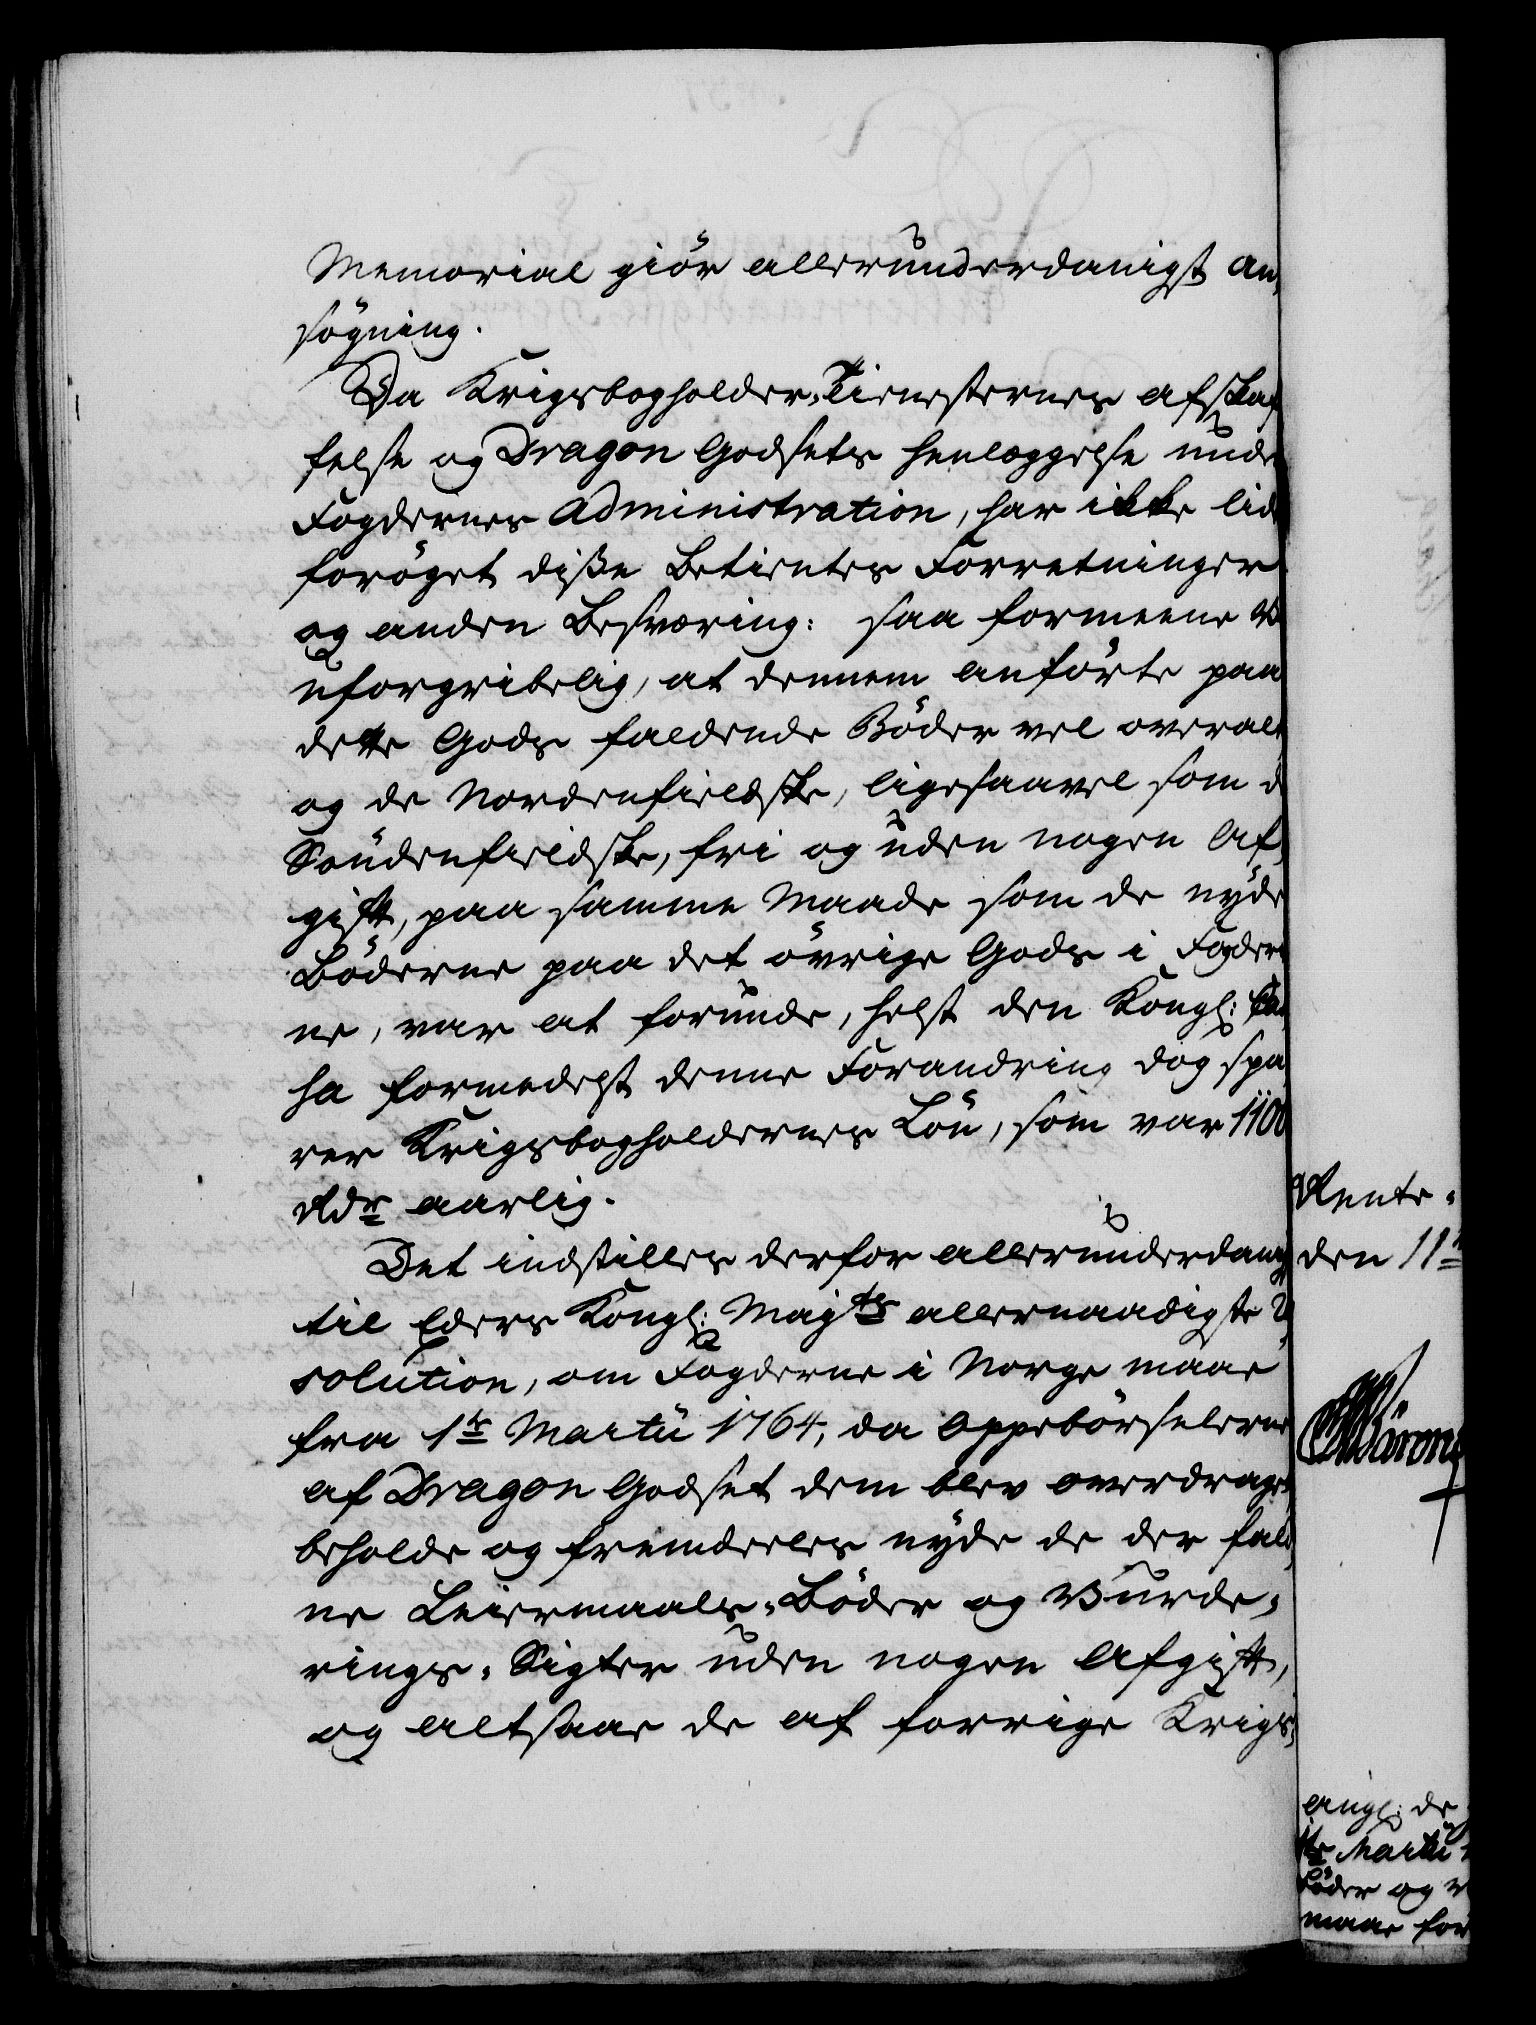 Memorial giør allerunderdanigst An,
søgning.
Da Krigsbogholder-Tienesternes afskaf
felse og Dragon Godsets Henlæggelse unde
Fogdernes Administration, har ikke lid
forøget disse Betientes Forretninger
og anden Besværing: saa formeene Vi
uforgribelig, at dennem anførte paa
dette Gods faldende Bøder vel overalt
og de Nordenfieldske, ligesaavel som d
Søndenfieldske, fri og uden nogen Af,
gift, paa samme Maade som de nyde
Bøderne paa det øvrige Gods i Fogderi
ne, var at forunde, helst den Kongl: Cas
sa formedelst denne Forandring dog spa
rer Krigsbogholdernes Løn, som var 1100
Rdr aarlig.
Det indstilles derfor allerunderdanig
til Eders Kongl: Majts allernaadigste Re
solution, om Fogderne i Norge maae
fra 1te Martii 1764, da Oppebørselerne
af Dragon Godset dem blev overdraget,
beholde og fremdeeles nyde de der fald,
ne Leiermaals-Bøder og Vurde,
rings-Sigter uden nogen Afgift,
og altsaae de af forrige Krigs,
Rente-
den 11te
angl: de
1te Martii
Bøder og V
maae for